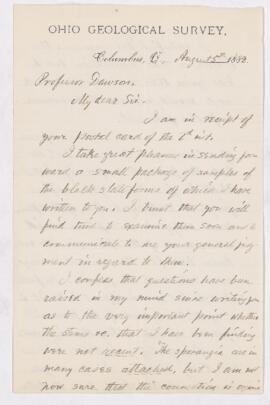 OHIO GEOLOGICAL SURVEY.
Columbus, O., August 5th 1882.
Professor Dawson,
My dear Sir.
I am in receipt of
your postal card of the 1st inst.
I take great pleasure in sending for
ward a small package of samples of
the black slate forms of which I have
written to you. I trust that you will
find time to examine them soon and to
communicate to me your general judg
ment in regard to them.
I confess that questions have been
raised in my mind since writing you
as to the very important point whether
the stems &c. that I have been finding
were not recent. The sporangia are in
many cases attached, but I am not
now sure that the connection is organic